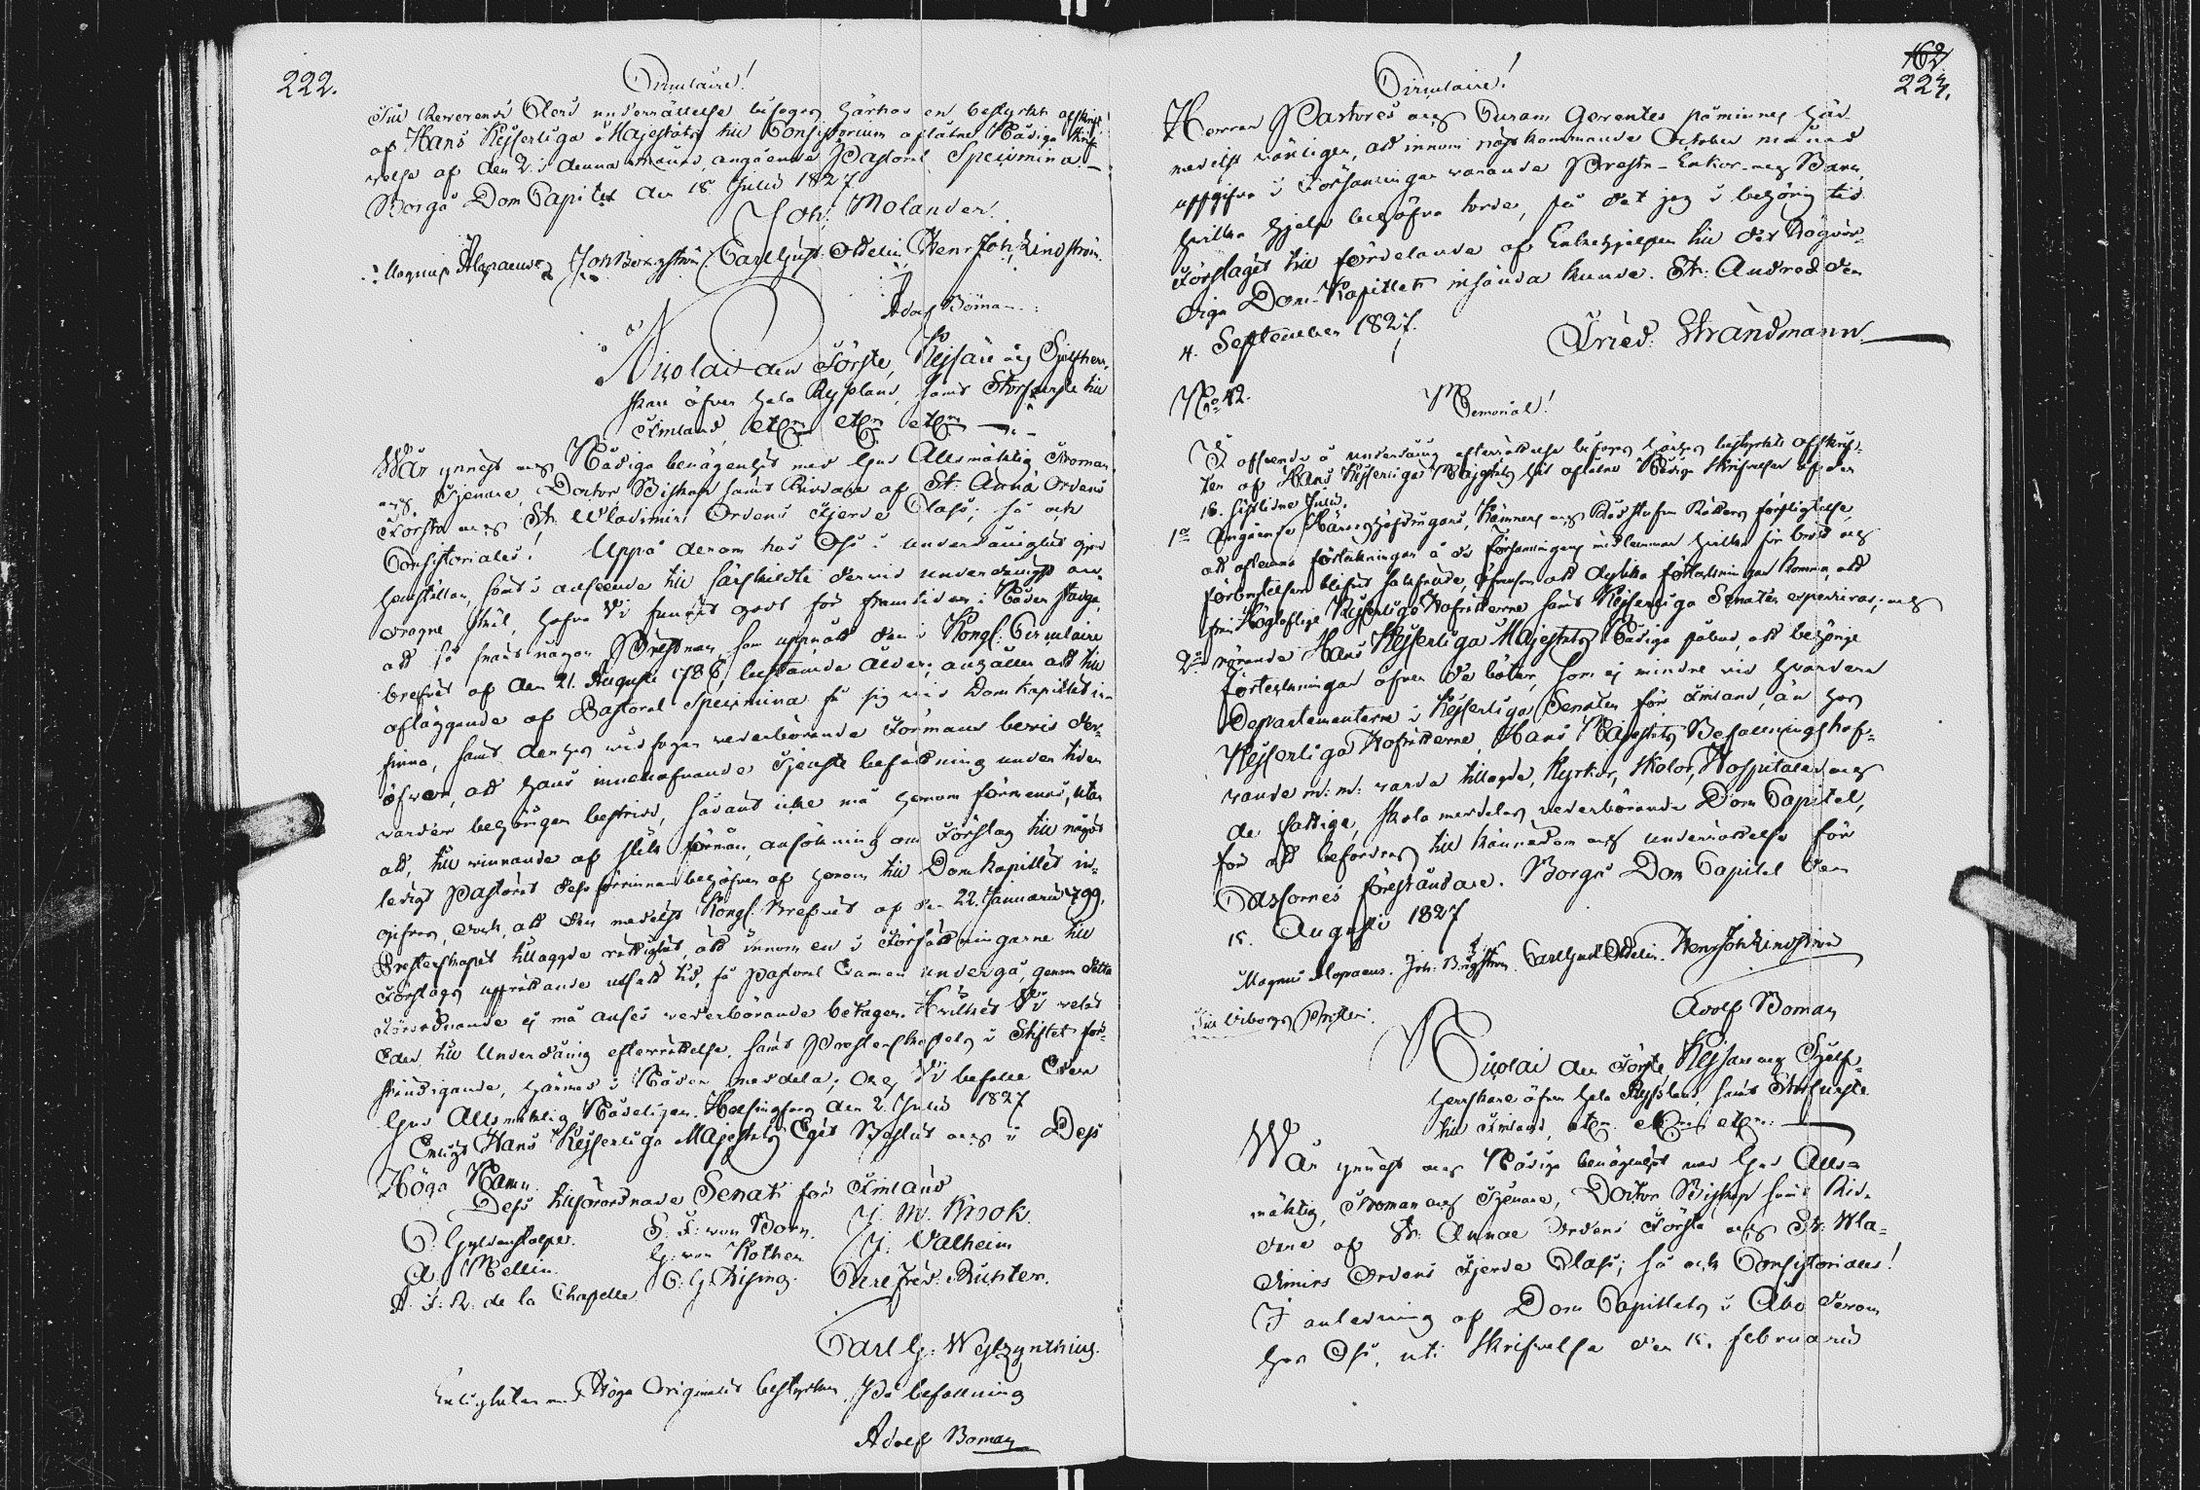 222.
Circulaire!
Till Reverendi Cleri underrättelse bifogas härhos en bestyrkt afskrift
af Hans Kejserliga Majestäts till Consistorium aflåtne Nådiga Skrif-
velse af den 2. i denna månad, angående Pastoral Specimina.
Borgå Dom Capitel den 18 Julii 1827
Joh: Molander.
Magnus Alopaeus Joh Borgström Carl Gust: Odelin Henr Joh Lindström
Adolf Boman
Nicolai den Förste, Kejsare och Sjelfherr-
skare öfver hela Ryssland, samt Storfurste till
Finland, etc etc etc
Wår ynnest och Nådiga benägenhet med Gud Allsmäktig, Troman
och Tjenare, Doctor Biskop samt Riddare af St: Annæ Ordens
Första och St: Wladimirs Ordens Fjerde Class; så och
Consistoriales! Uppå derom hos Oss i underdånighet gjord
hemställan, samt i anseende till särskildte dervid underdånigst an-
dragne skäl, hafve Vi funnit godt för framtiden i Nåder stadga,
att så snart någon Prestman, som uppnått den i Kongl. Circulaire
brefvet af den 21. Augusti 1786 bestämde ålder, anhåller att till
afläggande af Pastoral Specimina få sig vid Domkapitlet in-
finna, samt dervid vidfogar vederbörande Förmans bevis der-
öfver, att hans innehafvande Tjenste befattning under tiden
varder behörigen bestridd, sådant icke må honom förmenas, utan
att, till vinnande af slik förmån, ansökning om Förslag till något
ledigt Pastorat dessförinnan behöfver af honom till Domkapitlet in-
gifvas, dock, att den medelst Kongl. Brefvet af den 22. Januarii 1799.
Presterskapet tillagde rättighet, att innom en i Författningarne till
Förslags upprättande utsatt tid, få Pastoral Examen undergå, genom detta
Förordnande ej må anses vederbörande betagen. Hvilket Vi velat
Eder till Underdånig efterrättelse, samt Presterskapets i Stiftet för-
ständigande, härmed i Nåder meddela; och Vi befalle Eder
Gud Allsmäktig Nådeligen. Helsingfors den 2. Julii 1827
Enligt Hans Kejserliga Majestäts Eget Beslut och i Dess
Höga Namn.
Dess tillförordnade Senat för Finland
C: Gyldenstolpe. S. F. von Born. J. M. Krook.
A. Mellin. G. von Kothen J. Walheim
A. F. R. de la Chapelle C. G. Hising. Carl Fred. Richter.
Carl G. Westzynthius.
Enligheten med Höga Originalet bestyrker, På befallning
Adolf Boman
162
223.
Circulaire!
Herrar Pastores och Curam Gerentes påminnes här
medelst vänligen, att innom nästkommande October månad
uppgifva i Församlingar varande Preste-Enkor och Barn,
hvilka hjelp behöfva torde, på det jag i behörig tid
Förslaget till fördelande af Enkehjelpen till det Högvör-
diga Dom-Kapitlet insända kunde. St: Andreæ den
4. September 1827.
Fried. Strandmann
No 42.
Memorial!
I afseende å underdånig efterrättelse bifogas härhos bestyrkte afskrif-
ter af Hans Kejserliga Majestäts hit aflåtne Nådiga Skrifvelser af den
18. sistledne Julii
1o Angående Häradshöfdingars, Kämners och Rådstufvu Rätters förpligtelse
att aflemna förteckningar å de församlingens medlemmar hvilka för brott och
förbrytelser blifvit sakfällde, äfvensom att dylika förteckningar komma, att
från Höglofliga Kejserliga Hofrätterne samt Kejserliga Senaten expedieras; och
2o rörande Hans Kejserliga Majestäts Nådiga påbud, att behörige
förteckningar öfver de böter, som ej mindre vid hvardera
Departementerne i Kejserliga Senaten för Finland, än hos
Kejserliga Hofrätterne, Hans Majestäts Befallningshaf-
vande m: m: varda tillagde, Kyrkor, skolor, Hospitaler och
de fattige, skola meddelas vederbörande Dom Capitel,
för att befordras till kännedom och underrättelse för
Cassornes föreståndare. Borgå Dom Capitel den
15. Augusti 1827
Magnus Alopaeus. Joh: Borgström Carl Gust Odelin. Henr Joh Lindström
Adolf Boman
Till Wiborgs Prosteri.
Nicolai den Förste Kejsare och Sjelf-
herrskare öfver hela Ryssland, samt Storfurste
till Finland, etc. etc. etc.
Wår ynnest och Nådiga benägenhet med Gud Alls-
mäktig, Troman och Tjenare, Doctor Biskop samt Rid-
dare af St. Annae Ordens Första och St: Wla-
dimirs Ordens Fjerde Class; så och Consistoriales!
I anledning af Dom Capitlets i Åbo derom
hos Oss, uti skrifvelse den 15. februarii